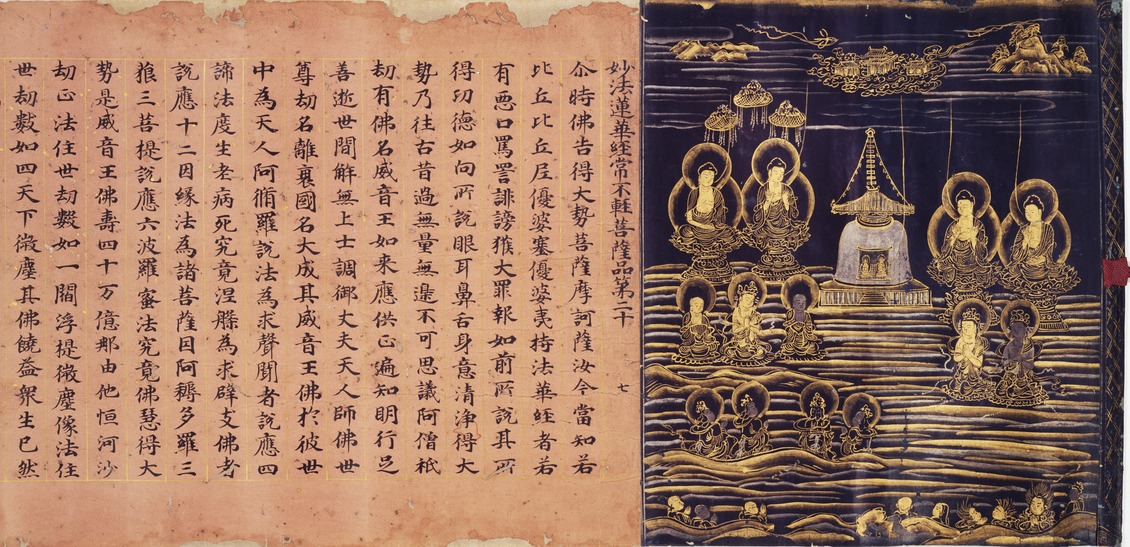 妙法蓮華經常不輕菩薩品第二十
七
尒時佛告得大勢菩薩摩訶薩汝今當知若
比丘比丘尼優婆塞優婆夷持法華經者若
有惡口罵詈誹謗獲大罪報如前所說其所
得功德如向所說眼耳鼻舌身意清淨得大
勢乃往古昔過無量無邊不可思議阿僧祇
劫有佛名威音王如來應供正遍知明行足
善逝世間解無上士調御丈夫天人師佛世
尊劫名離衰國名大成其威音王佛於彼世
中為天人阿脩羅說法為求聲聞者說應四
諦法度生老病死究竟涅槃為求辟支佛者
說應十二因緣法為諸菩薩因阿耨多羅三
狼三菩提說應六波羅蜜法究竟佛慧得大
勢是威音王佛壽四十万億那由他恒河沙
劫正法住世劫數如一閻浮提微塵像法住
世劫數如四天下微塵其佛饒益眾生已然